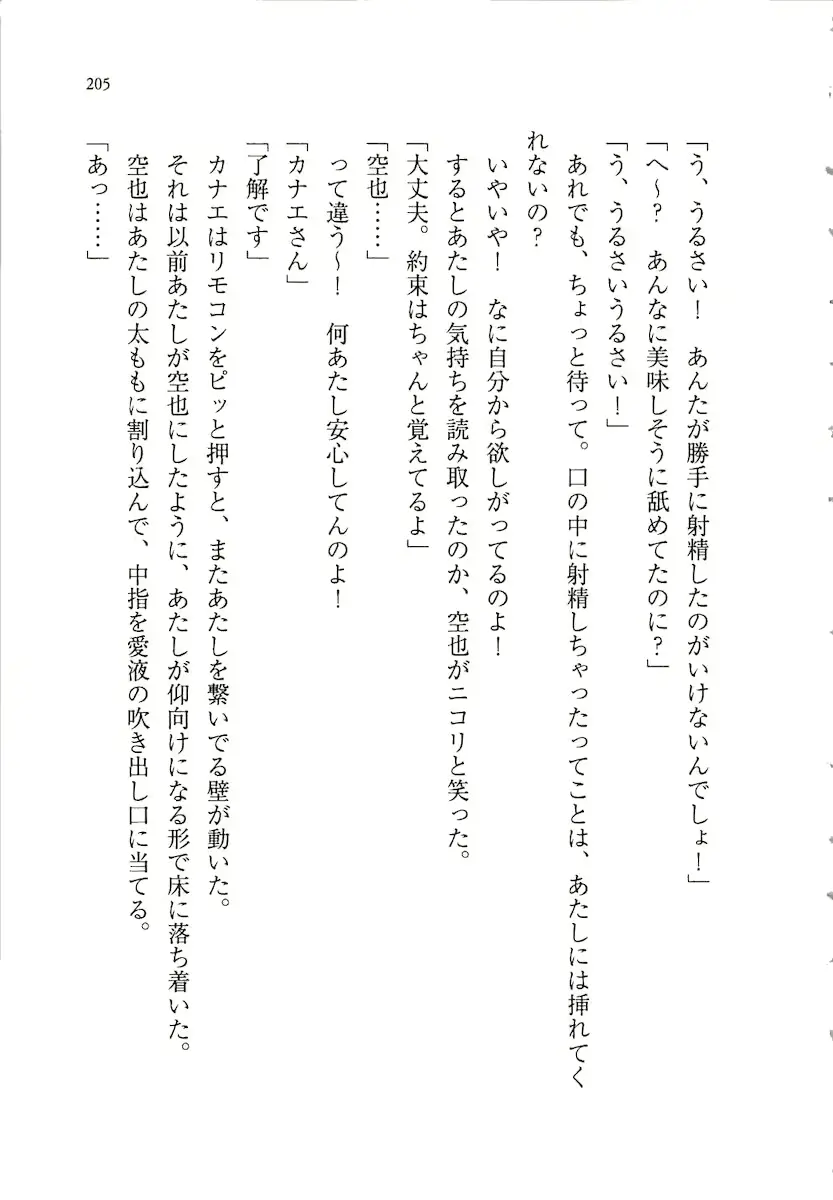 205
「う、うるさい！　あんたが勝手に射精したのがいけないんでしょ！」
「へ〜？　あんなに美味しそうに舐めてたのに？」
「う、うるさいうるさい！」
　あれでも、ちょっと待って。口の中に射精しちゃったってことは、あたしには挿れてく
れないの？
　いやいや！　なに自分から欲しがってるのよ！
　するとあたしの気持ちを読み取ったのか、空也がニコリと笑った。
「大丈夫。約束はちゃんと覚えてるよ」
「空也……」
　って違う〜！　何あたし安心してんのよ！
「カナエさん」
「了解です」
　カナエはリモコンをピッと押すと、またあたしを繋いでる壁が動いた。
　それは以前あたしが空也にしたように、あたしが仰向けになる形で床に落ち着いた。
　空也はあたしの太ももに割り込んで、中指を愛液の吹き出し口に当てる。
「あっ……」